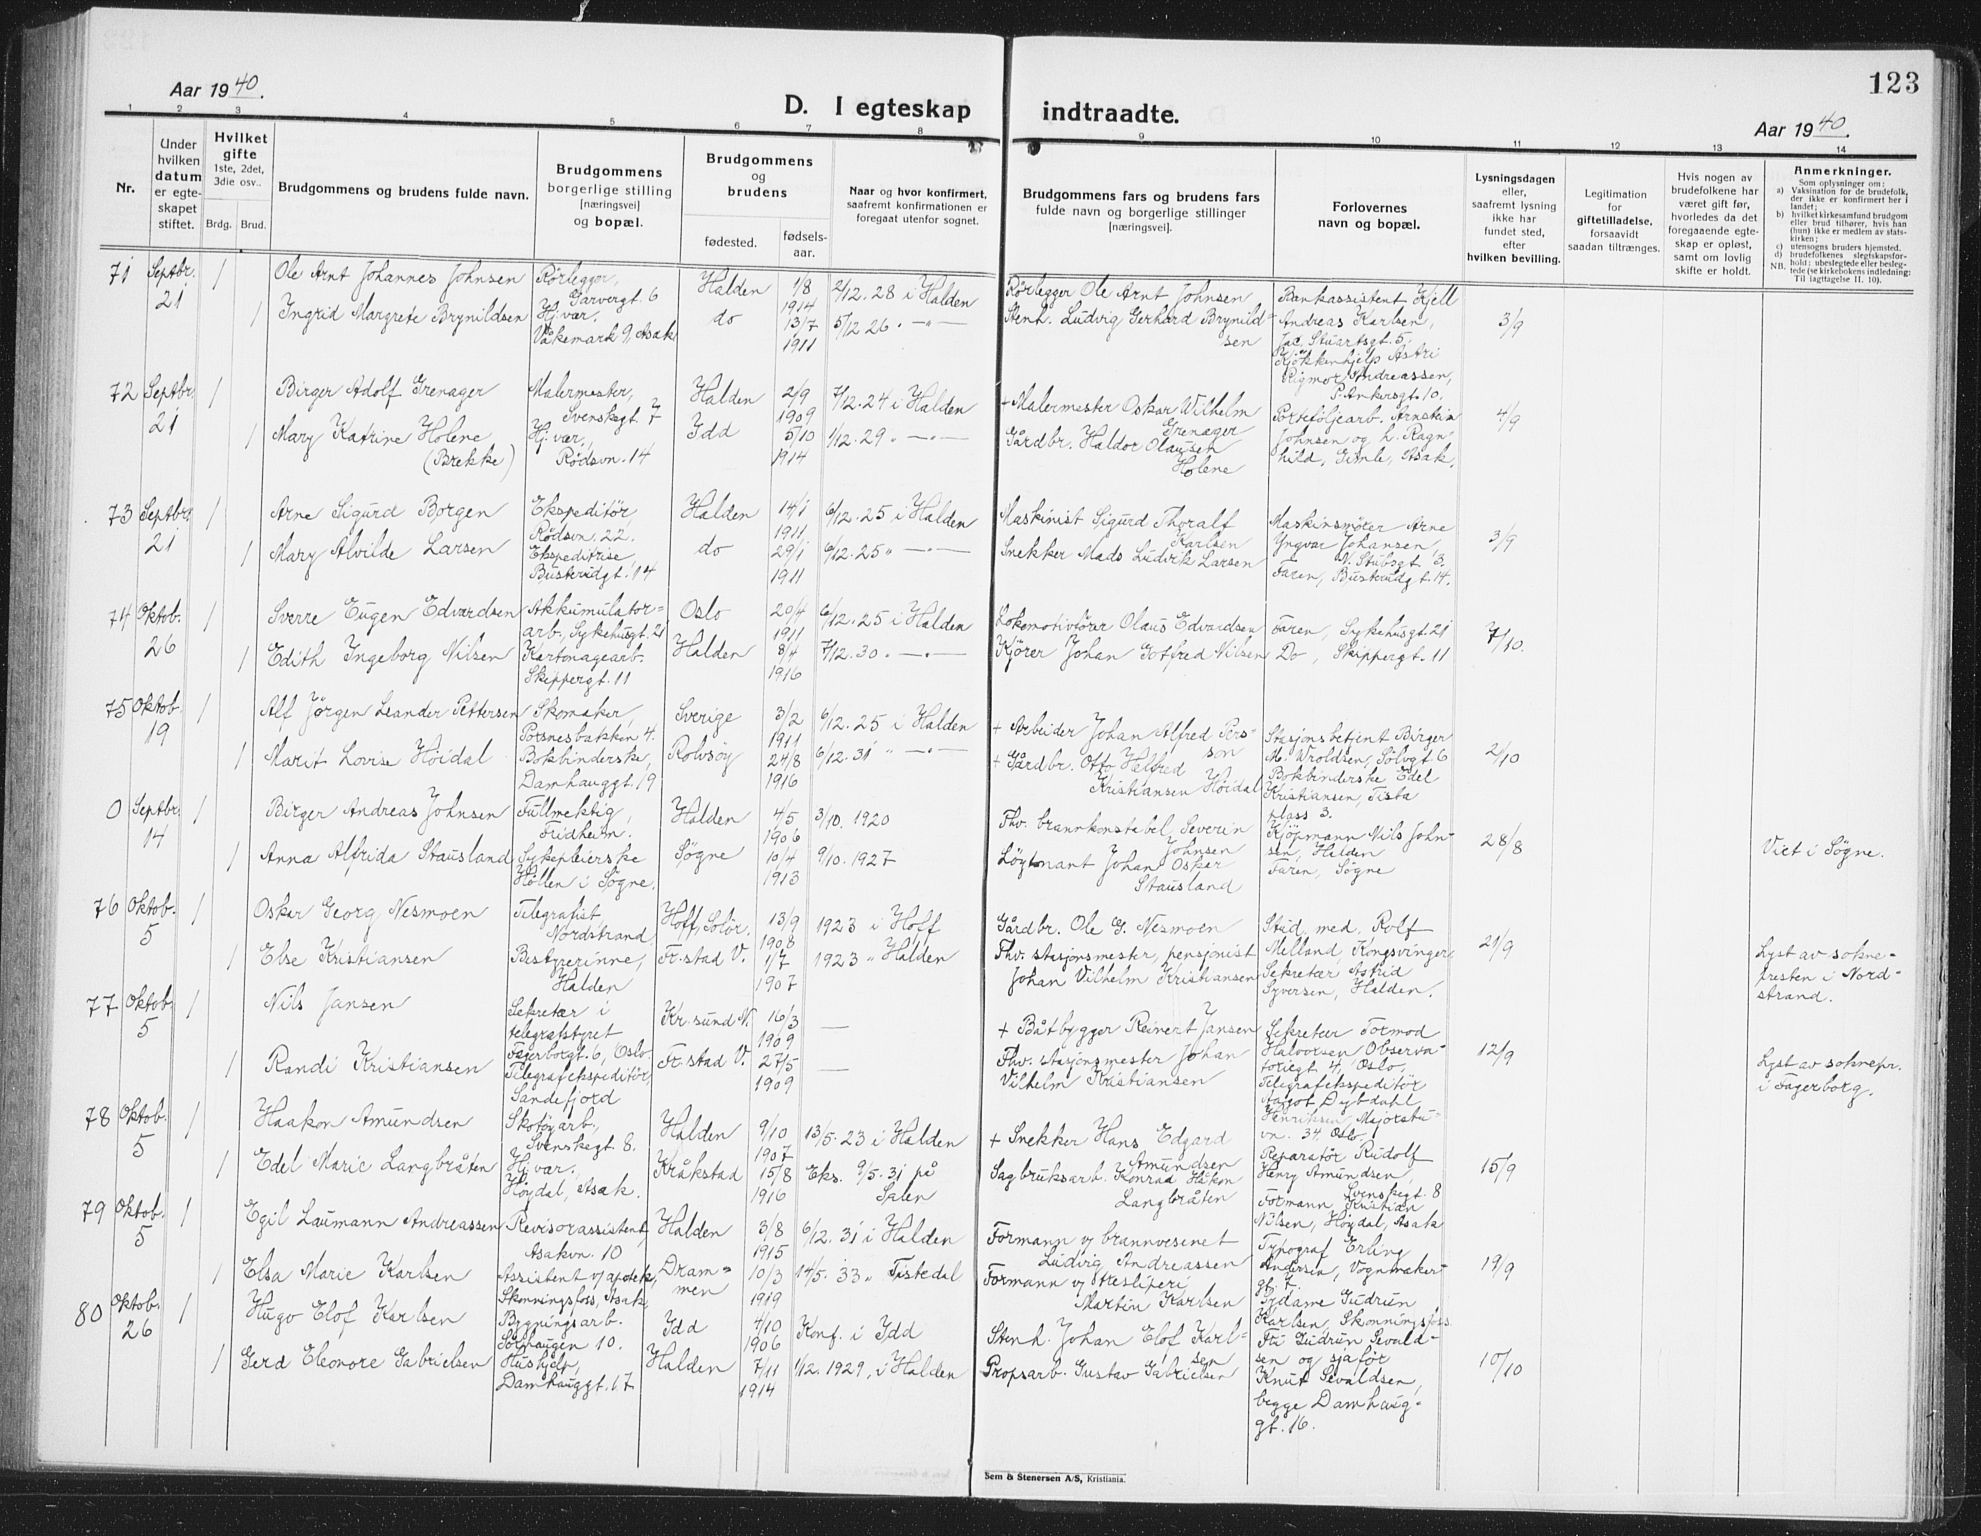 123
Aar 1940.
D. I egteskap indtraadte.
Aar 1940.
1 2 3 4 5 6 7 8 9 10 11 12 13 14
Nr.
Under hvilken datum er egteskapet stiftet.
Hvilket gifte
1ste, 2det, 3die osv..
Brdg. Brud.
Brudgommens og brudens fulde navn.
Brudgommens borgerlige stilling [næringsvei] og bopæl.
Brudgommens og brudens
fødested. fødselsaar.
Naar og hvor konfirmert, saafremt konfirmationen er foregaat utenfor sognet.
Brudgommens fars og brudens fars fulde navn og borgerlige stillinger [næringsvei].
Forlovernes navn og bopæl.
Lysningsdagen eller, saafremt lysning ikke har fundet sted, efter hvilken bevilling.
Legitimation for giftetilladelse, forsaavidt saadan tiltrænges.
Hvis nogen av brudefolkene har været gift før, hvorledes da det foregaaende egteskap er opløst, samt om lovlig skifte er holdt.
Anmerkninger.
Som oplysninger om:
a) Vaksination for de brudefolk, der ikke er konfirmert her i landet;
b) hvilket kirkesamfund brudgom eller brud tilhører, hvis han (hun) ikke er medlem av statskirken;
c) utensogns bruders hjemsted.
d) brudefolkenes slegtskapsforhold; ubeslegtede eller beslegtede (se kirkebokens indledning: Til iagttagelse II. 10).
NB.
71 Septbr. 21 1 Ole Arnt Johannes Johnsen Rørlegger, Garvergt. 6 Halden 1/8 1914 2/12. 28 i Halden Rørlegger Ole Arnt Johnsen Bankassistent Kjell Andreas Karlsen, Jac. Stuartsgt. 5. 3/9
1 Ingrid Margrete Brynildsen Hj.vær. Vakemark 9, Asak do 13/7 1911 5/12 26 . -"- Stenh. Ludvig Gerhard Brynildsen Kjøkkenhjelp Astri Rigmor Andreassen, P. Ankersgt. 10.
72 Septbr. 21 1 Birger Adolf Grenager Malermester, Svenskegt. 7 Halden 2/9 1909 7/12. 24 i Halden + Malermester Oskar Wilhelm Grenager Porteføljearb. Arnstein Johnsen og h. Ragnhild, Gimle, Asak. 4/9
1 Mary Katrine Holene (Brekke) Hj.vær, Rødsvn. 14 Idd 5/10 1914 1/12. 29 " Gårdbr. Haldor Olausen Holene
73 Septbr. 21 1 Arne Sigurd Borgen Ekspeditør, Rødsvn. 22. Halden 14/1 1911 6/12. 25 i Halden Maskinist Sigurd Thoralf Karlsen Maskinsmører Arne Yngvar Johansen, N. Stubsgt. 3. 3/9
1 Mary Alvilde Larsen Ekspeditrise Busterudgt. 14 do 29/1 1911 6/12. 25 " Snekker Mads Ludvik Larsen Faren, Busterudgt. 14.
74 Oktob. 26 1 Sverre Eugen Edvardsen Akkumulatorarb., Sykehusgt. 21 Oslo 20/4 1911 6/12. 25 i Halden Lokomotivfører Olaus Edvardsen Faren, Sykehusgt. 21 7/10.
1 Edith Ingeborg Nilsen Kartonagearb. Skippergt. 11 Halden 8/4 1916 7/12. 30. Kjører Johan Gotfred Nilsen Do, Skippergt. 11
75 Oktob. 19 1 Alf Jörgen Leander Pettersen Skomaker, Porsnesbakken 4. Sverige 3/2 1911 6/12. 25 i Halden + Arbeider Johan Alfred Persson Stasjonsbetjent Birger M. Wroldsen, Sølvgt. 6 2/10
1 Marit Lovise Höidal Bokbinderske, Damhauggt. 19 Rolvsøy 24/8 1916 6/12. 31 " + Gårdbr. Otto Halfred Kristiansen Höidal Bokbinderske Edel Kristiansen, Tistaplass 3.
0 Septbr. 14 1 Birger Andreas Johnsen Fullmektig, Fridheim. Halden 4/5 1906 3/10. 1920 Fhv. brannkonstebel Severin Johnsen Kjøpmann Nils Johnsen, Halden 28/8 Viet i Søgne.
1 Anna Alfrida Stausland Sykepleierske Høllen i Søgne. Søgne 10/4 1913 9/10. 1927 Løytnant Johan Oskar Stausland Faren, Søgne
76 Oktob. 5 1 Oskar Georg Nesmoen Telegrafist, Nordstrand Hoff, Solør. 13/9 1908 1923 i Hoff Gårdbr. Ole G. Nesmoen Stud. med. Rolf Melland, Kongsvinger 21/9 Lyst av sognepresten i Nordstrand.
1 Else Kristiansen Bestyrerinne, Halden Fr.stad V. 1/7 1907 1923 " Halden Fhv. stasjonsmester, pensjonist Johan Vilhelm Kristiansen Sekretær Astrid Syversen, Halden.
77 Oktob. 5 1 Nils Jansen Sekretær i telegrafstyret Fagerborgt. 6, Oslo. Kr.sund N. 16/3 1909 — + Båtbygger Reinert Jansen Sekretær Tormod Halvorsen Observatorigt 4, Oslo, 12/9 Lyst av soknepr. i Fagerborg.
1 Randi Kristiansen Telegrafekspeditør, Sandefjord Fr.stad V. 27/5 1909 — Fhv. stasjonsmester Johan Vilhelm Kristiansen Telegrafekspeditør Aagot Dybdahl Henriksen, Majorstuvn. 34, Oslo.
78 Oktob. 5 1 Haakon Amundsen Skotøyarb., Svenskegt. 8. Halden 9/10 1907 13/5. 23 i Halden + Snekker Hans Edgard Amundsen Reparatør Rudolf Henry Amundsen, Svenskegt. 8 15/9
1 Edel Marie Langbråten Hj.vær. Høydal, Asak. Kråkstad 15/8 1916 Eks. 9/5. 31 på Salen Sagbruksarb. Konrad Håkon Langbråten Formann Kristian Nilsen, Høydal, Asak
79 Oktob. 5 1 Egil Laumann Andreassen Revisorassistent, Asakvn. 10 Halden 3/8 1915 6/12. 31 i Halden Formann v/ brannvesenet Ludvig Andreassen Typograf Erling Andersen, Vognmakergt. 7. 19/9
1 Elsa Marie Karlsen Assistent v/ apotek, Skonningsfoss, Asak. Drammen 10/3 1919 14/5. 33 " Tistedal Formann v/ tresliperi Martin Karlsen Sydame Gudrun Karlsen, Skonningsfoss.
80 Oktob. 26 1 Hugo Elof Karlsen Bygningsarb. Sørhaugen 10. Idd 4/10 1906 Konf. i Idd Stenh. Johan Elof Karlsen Fru Gudrun Sevaldsen og sjåfør Knut Sevaldsen, begge Damhauggt. 16. 10/10
1 Gerd Eleonore Gabrielsen Hushjelp, Damhauggt. 17 Halden 7/11 1914 1/12. 1929, i Halden Propsarb. Gustav Gabrielsen
Sem & Stenersen A/S, Kristiania.